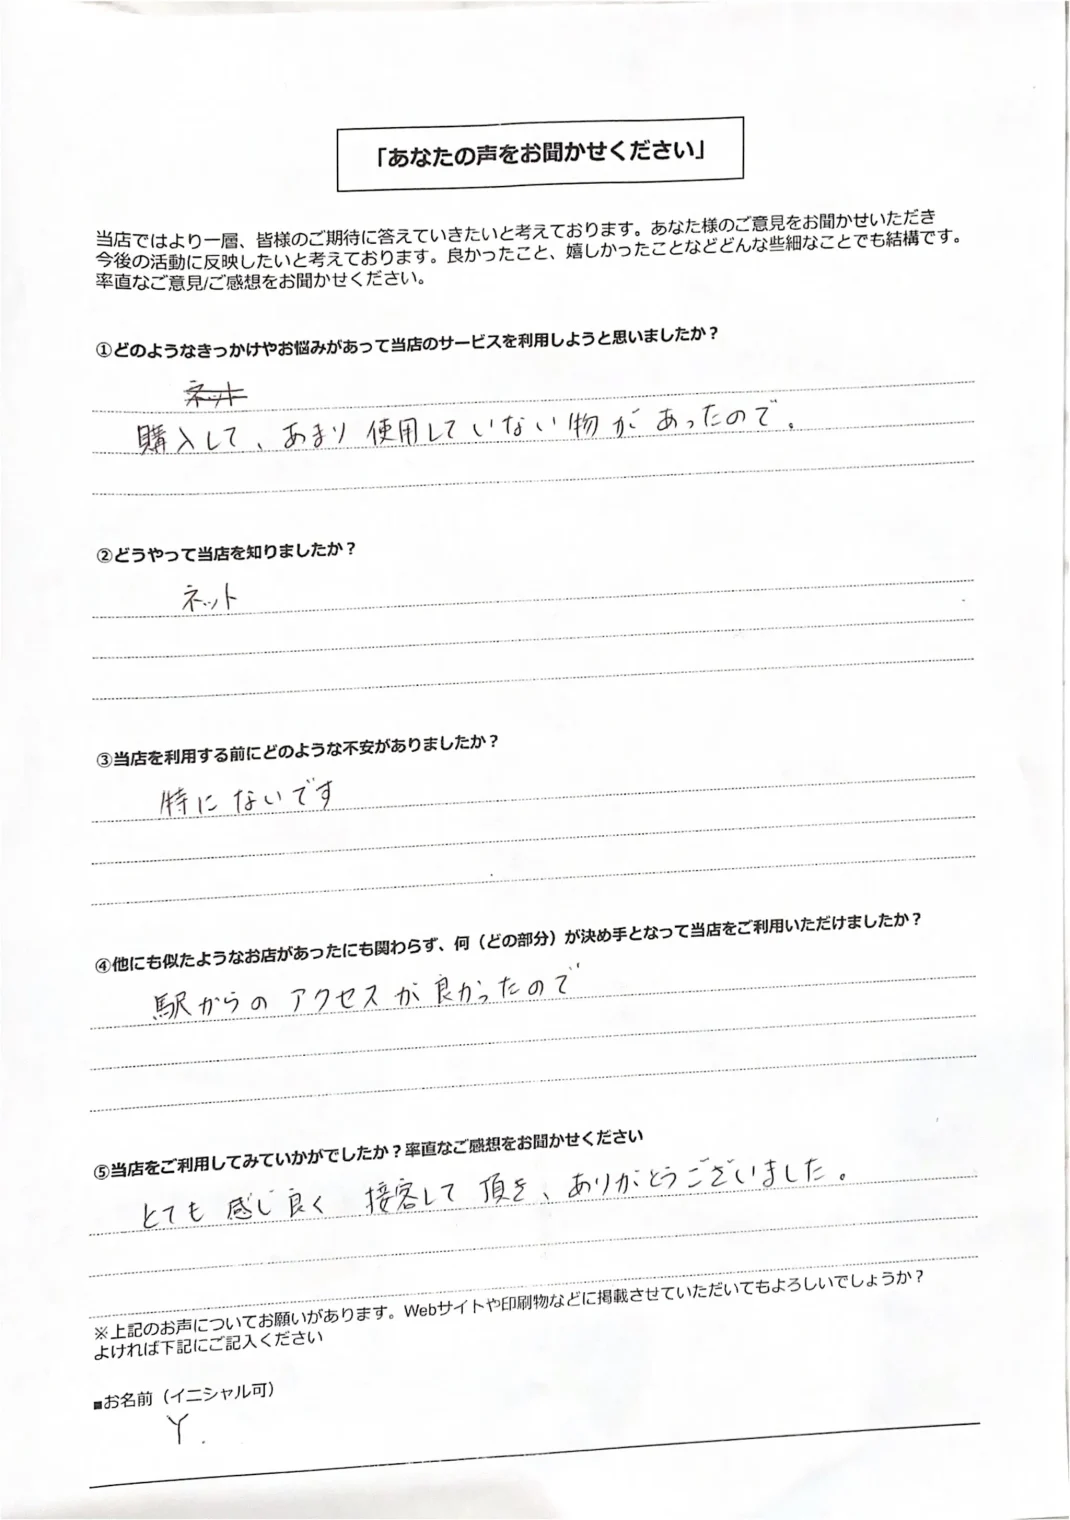 「あなたの声をお聞かせください」
当店ではより一層、皆様のご期待に答えていきたいと考えております。あなた様のご意見をお聞かせいただき
今後の活動に反映したいと考えております。良かったこと、嬉しかったことなどどんな些細なことでも結構です。
率直なご意見/ご感想をお聞かせください。
①どのようなきっかけやお悩みがあって当店のサービスを利用しようと思いましたか？
ネット
購入して、あまり使用していない物があったので。
②どうやって当店を知りましたか？
ネット
③当店を利用する前にどのような不安がありましたか？
特にないです
④他にも似たようなお店があったにも関わらず、何（どの部分）が決め手となって当店をご利用いただけましたか？
駅からのアクセスが良かったので
⑤当店をご利用してみていかがでしたか？率直なご感想をお聞かせください
とても感じ良く 接客して頂き、ありがとうございました。
※上記のお声についてお願いがあります。Webサイトや印刷物などに掲載させていただいてもよろしいでしょうか？
よければ下記にご記入ください
■お名前（イニシャル可）
Y.